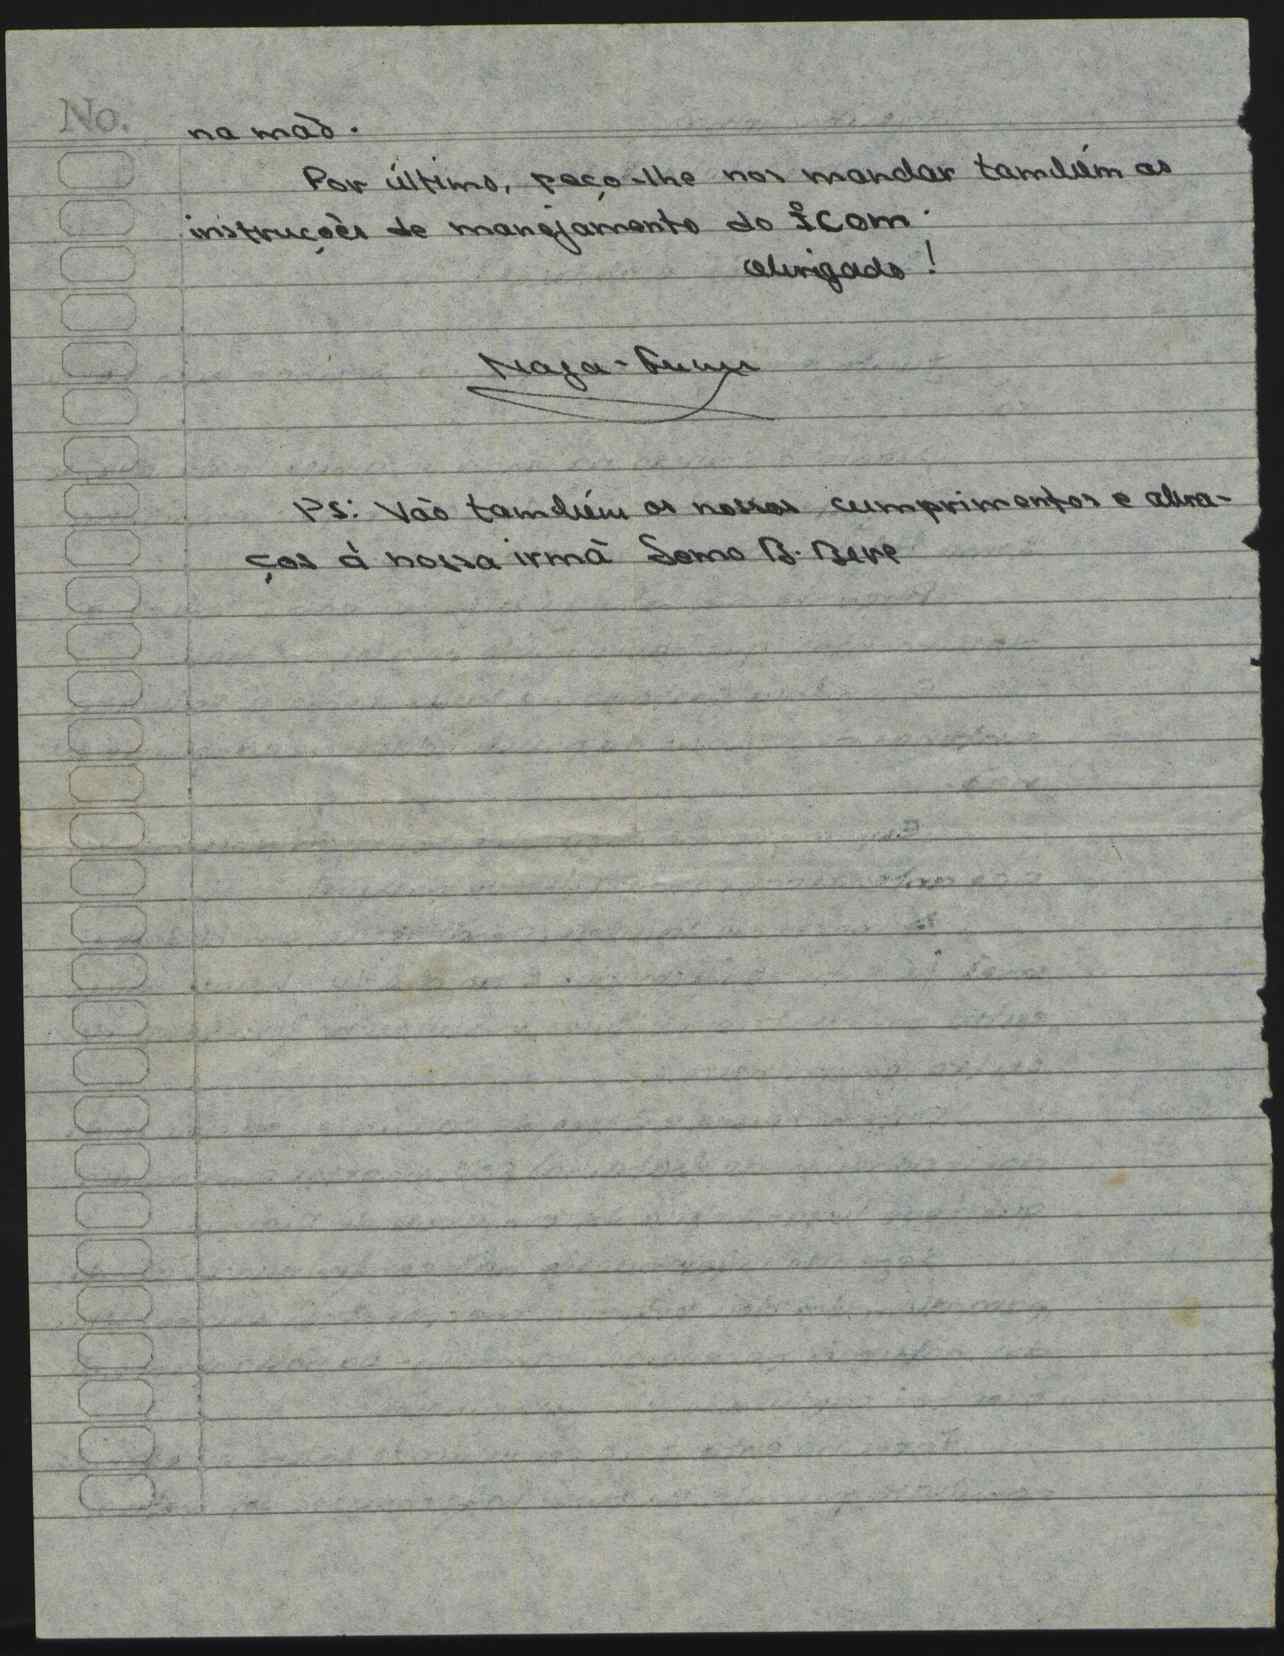 No.
na mão.
Por último, peço-lhe nos mandar também as
instruções de manejamento do icom.
Obrigado!
Naga-
PS: Vão também os nossos cumprimentos e abra-
ços à nossa irmã Somo B. Bere